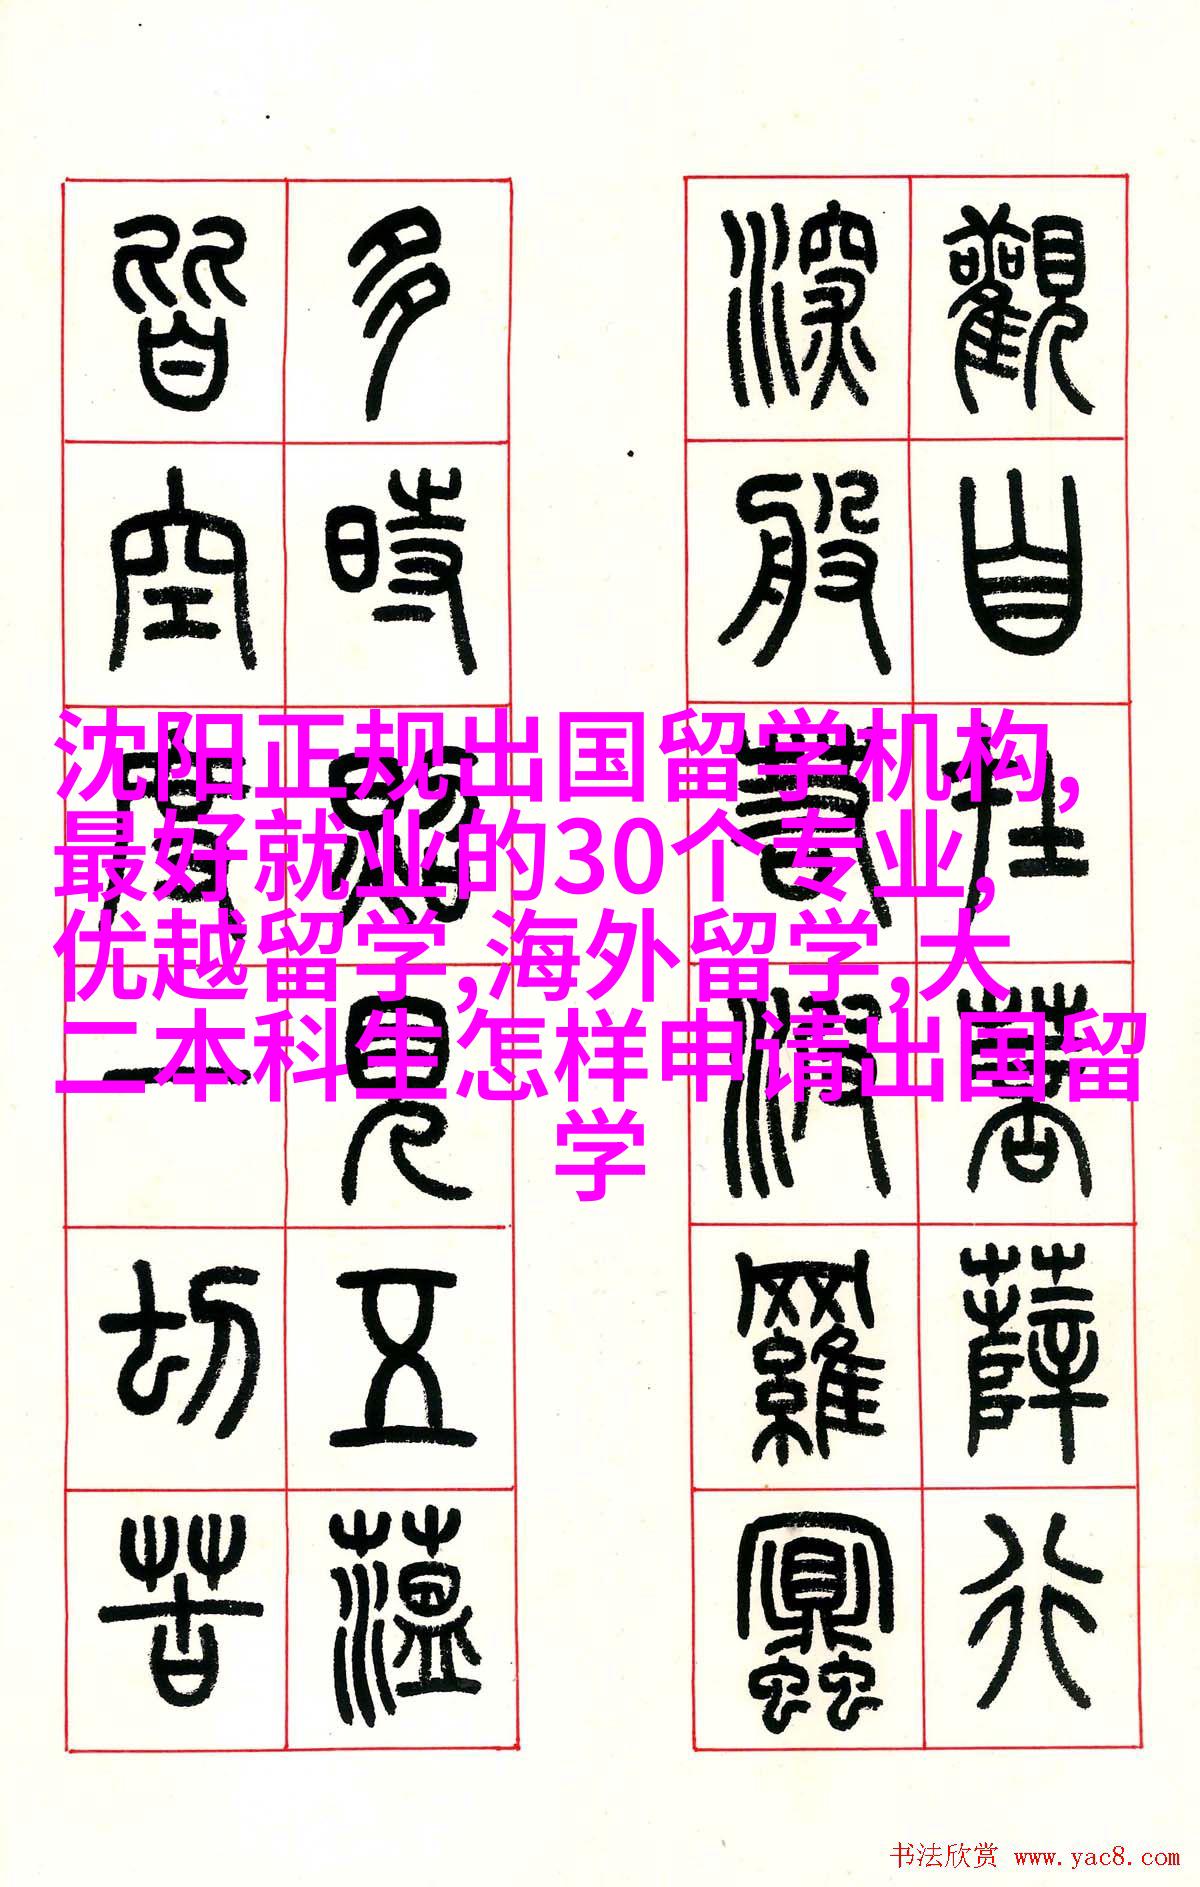 觀自在菩薩行
深般若波羅蜜
多時照見五蘊
皆空度一切苦
沈阳正规出国留学机构,
最好就业的30个专业,
优越留学,海外留学,大
二本科生怎样申请出国留
学
书法欣赏 www.yac8.com